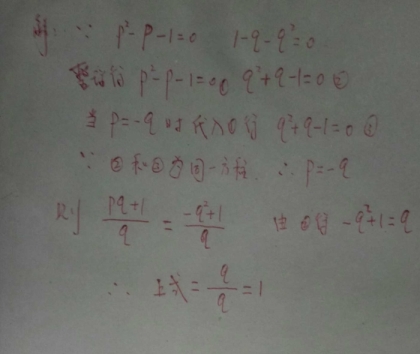 解:∵ p²-p-1=0 1-q-q²=0
整理得 p²-p-1=0① q²+q-1=0②
当 p=-q 时代入①得 q²+q-1=0③
∵ ②和③为同一方程 ∴ p=-q
则 (pq+1)/q = (-q²+1)/q 由②得 -q²+1=q
∴ 上式=q/q=1